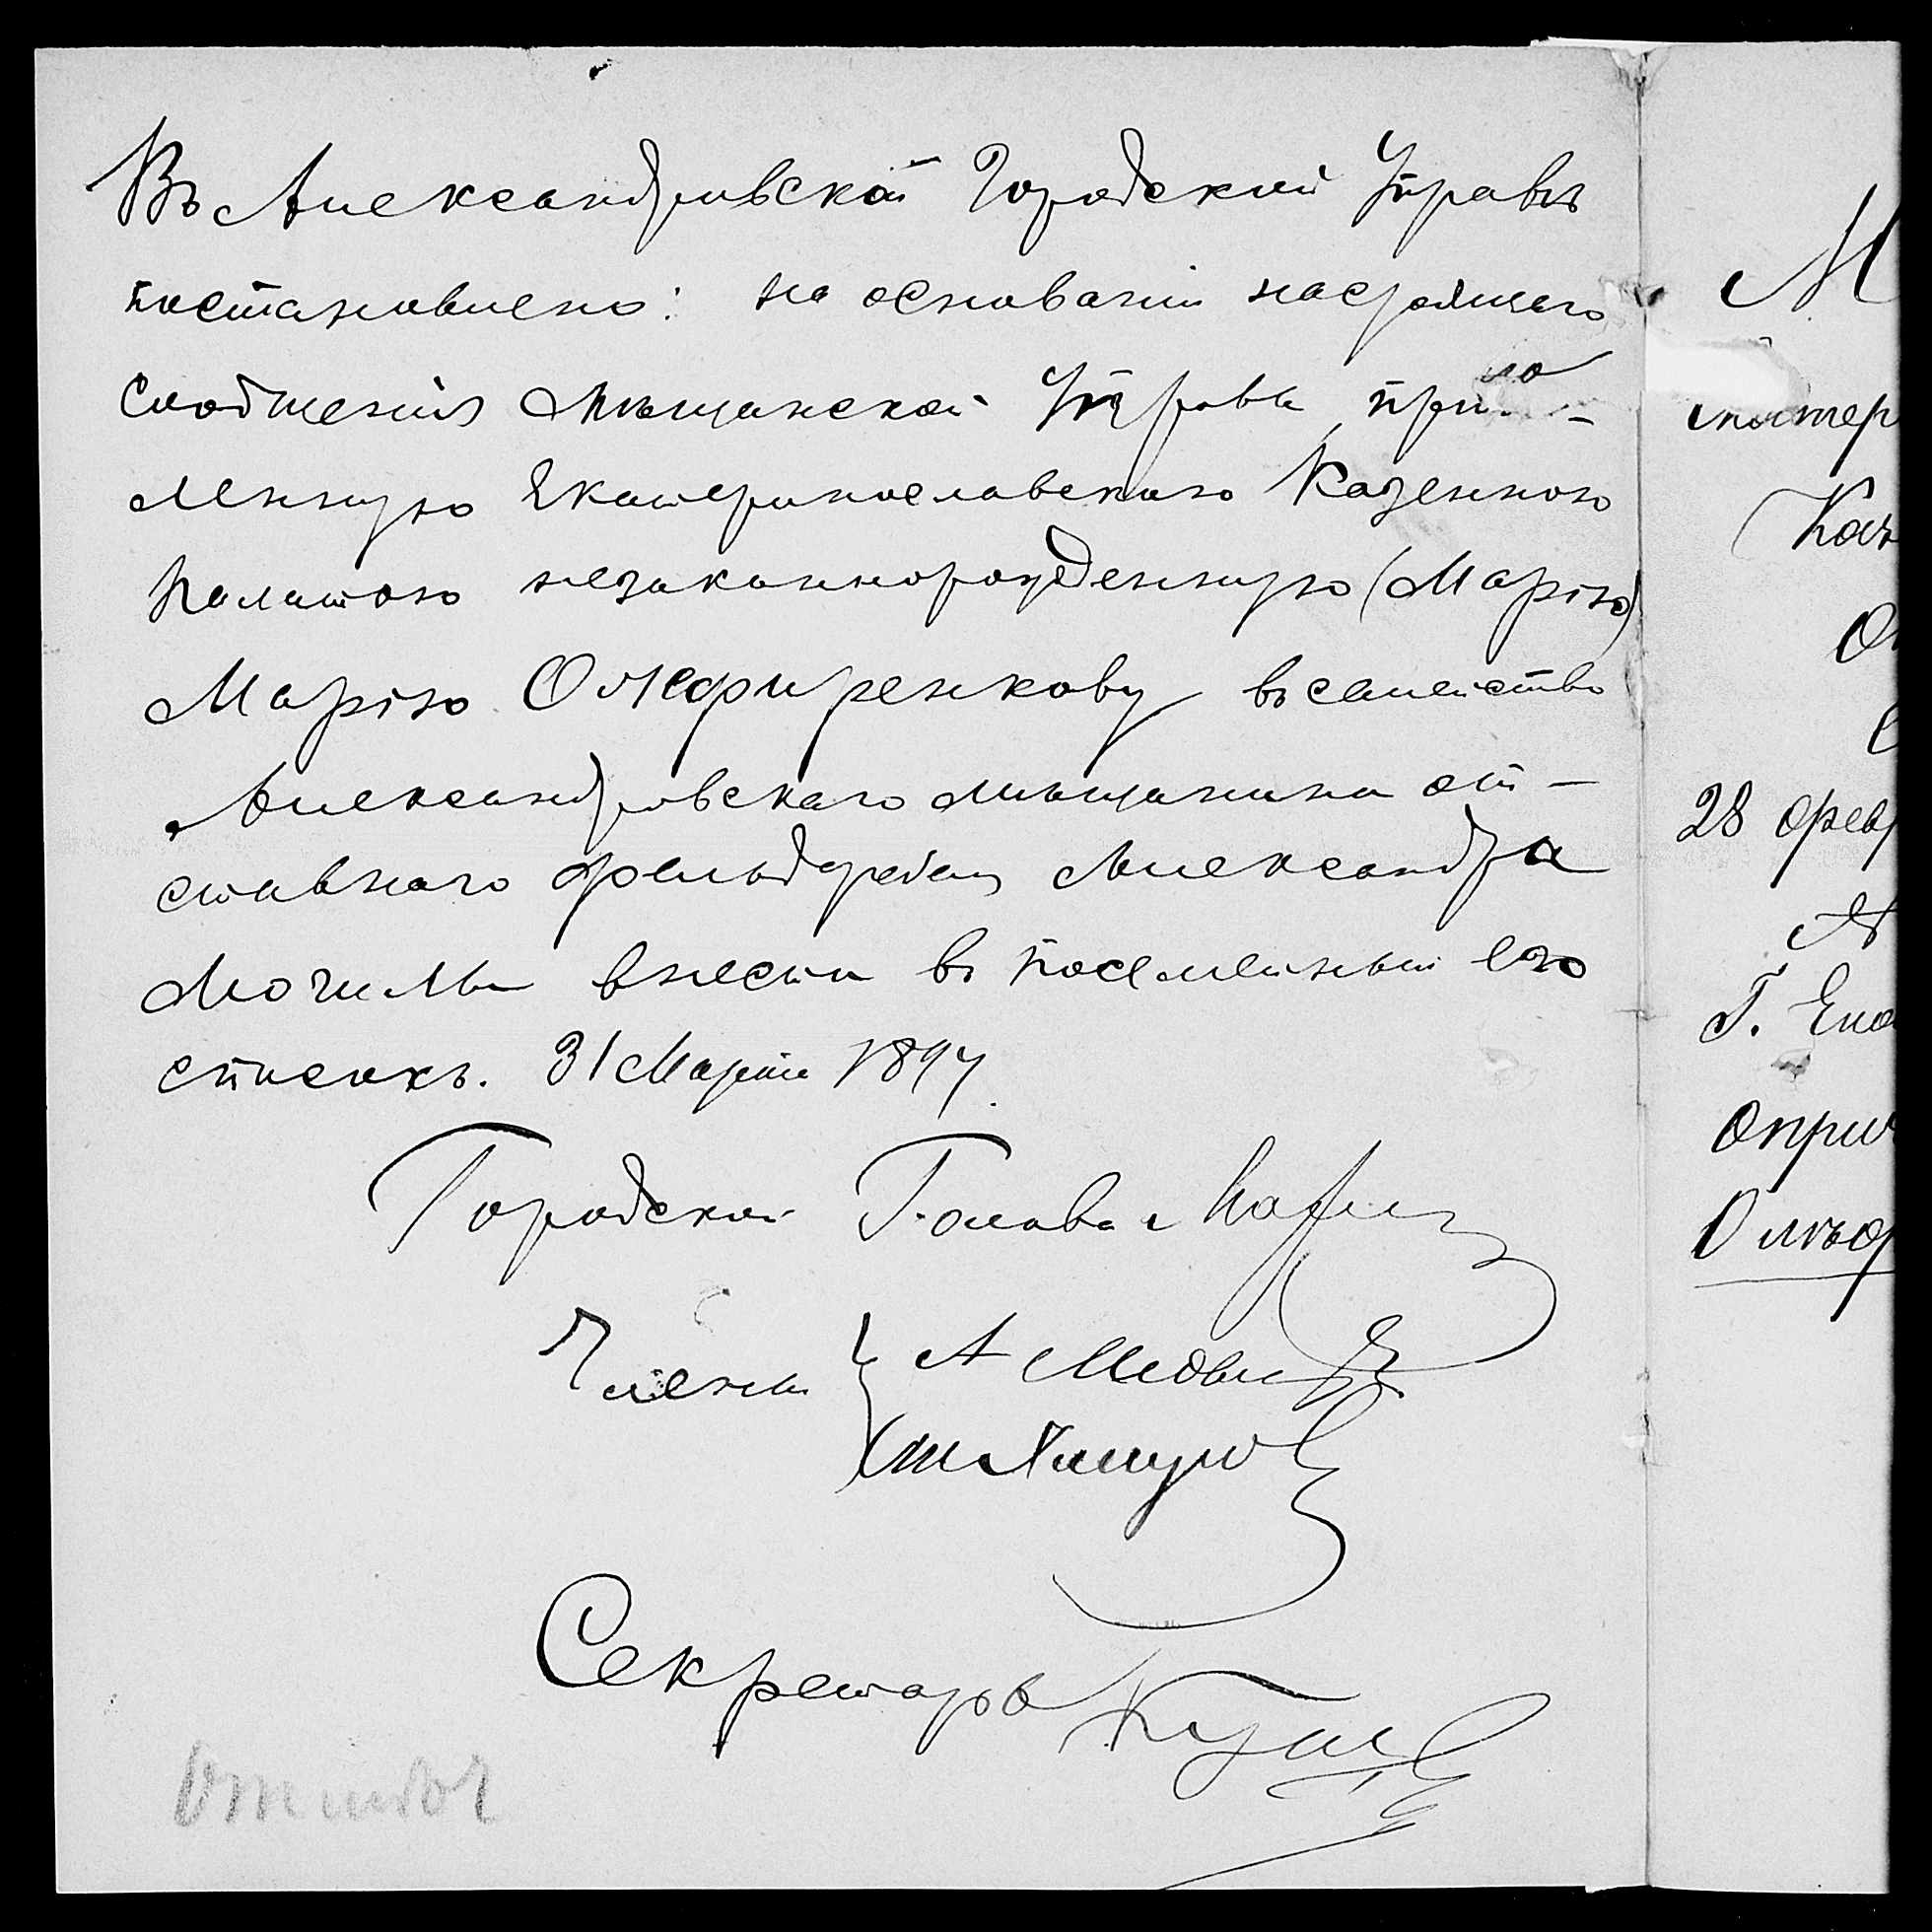 Въ Александровской Городской Управѣ
постановлено: на основаніи настоящаго
сообщенія Мѣщанской Управы, при
ленную Екатеринославскою Казенною
Палатою незаконнорожденную (Марію)
Марію Олефиренкову въ семейство
Александровскаго мѣщанина от-
ставнаго фельдфебеля Александра
Могилы внести въ посемейный его
списокъ. 31 Марта 1897.
Городской Голова
Члены А
Секретарь
М
Каз
28 февр
Г. Ека
Оприч
Олѣф